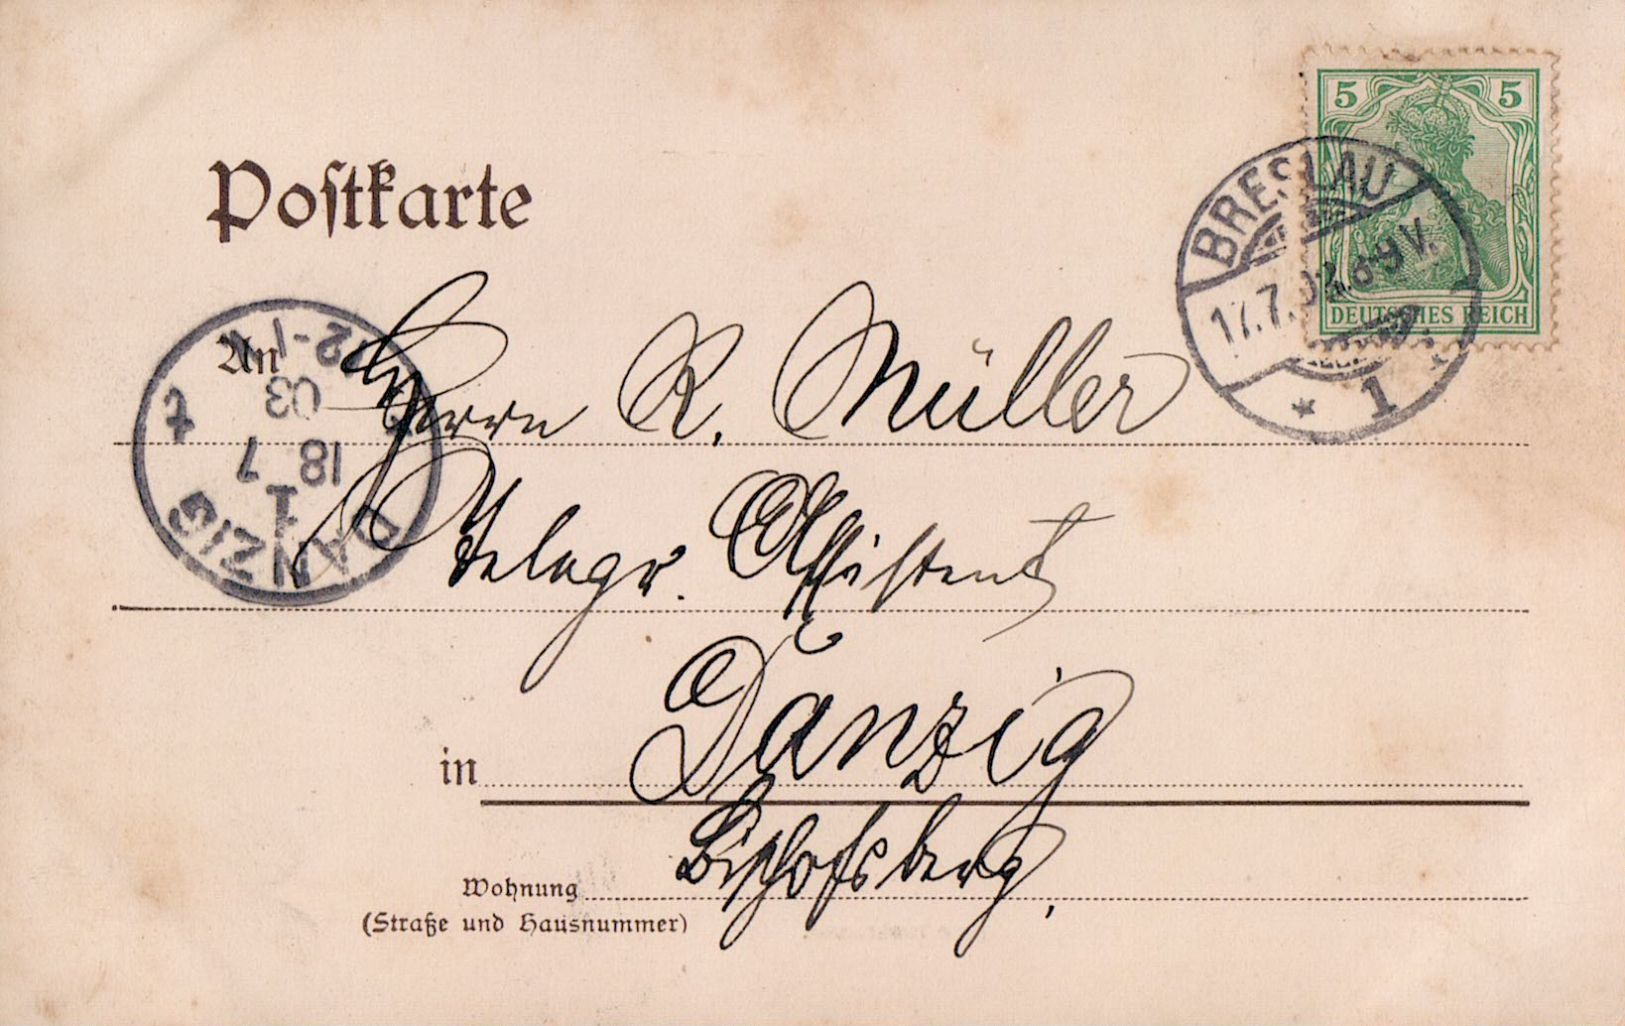 Postkarte
5 5
DEUTSCHES REICH
BRESLAU
17.7.03.8-9V.
* 1 *
DANZIG
1
18 7
03
12-1
An
Herrn R. Müller
Telegr. Assistent
in Danzig
Bischofsberg,
Wohnung
(Straße und Hausnummer)